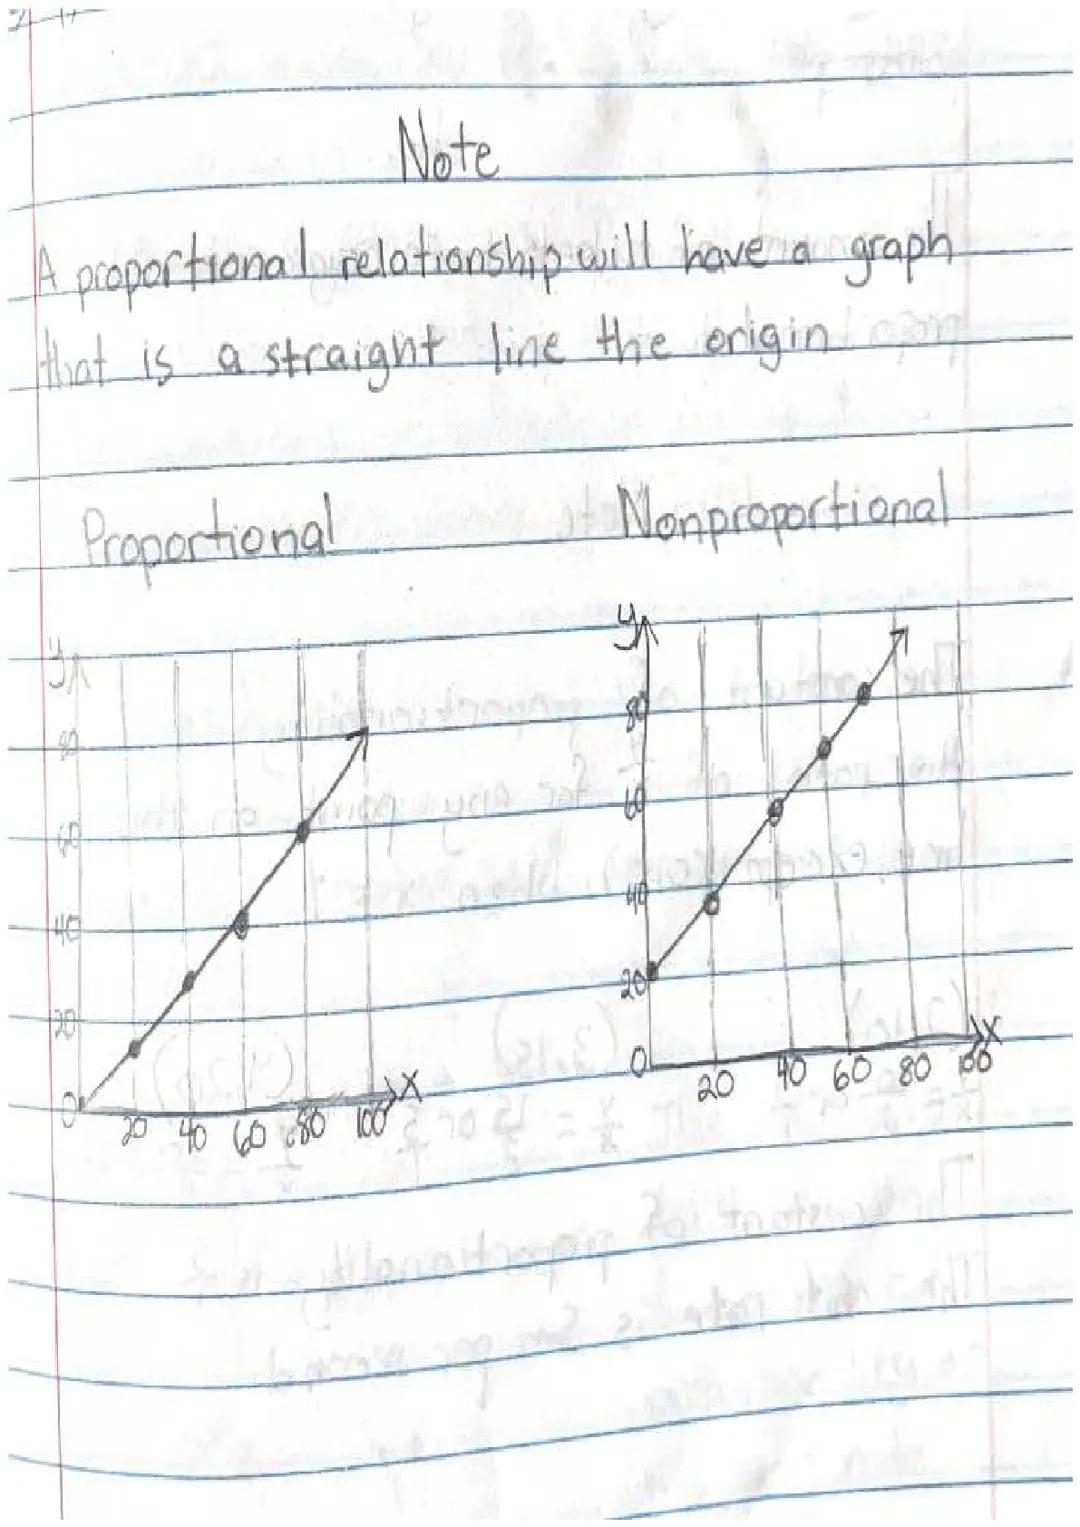 Note
A proportional relationship will have a graph
that is a straight line the origin
Proportional Nonproportional
y
80
60
40
20
0
20 40 60 80 100 X
y
80
60
40
20
0
20 40 60 80 100 X